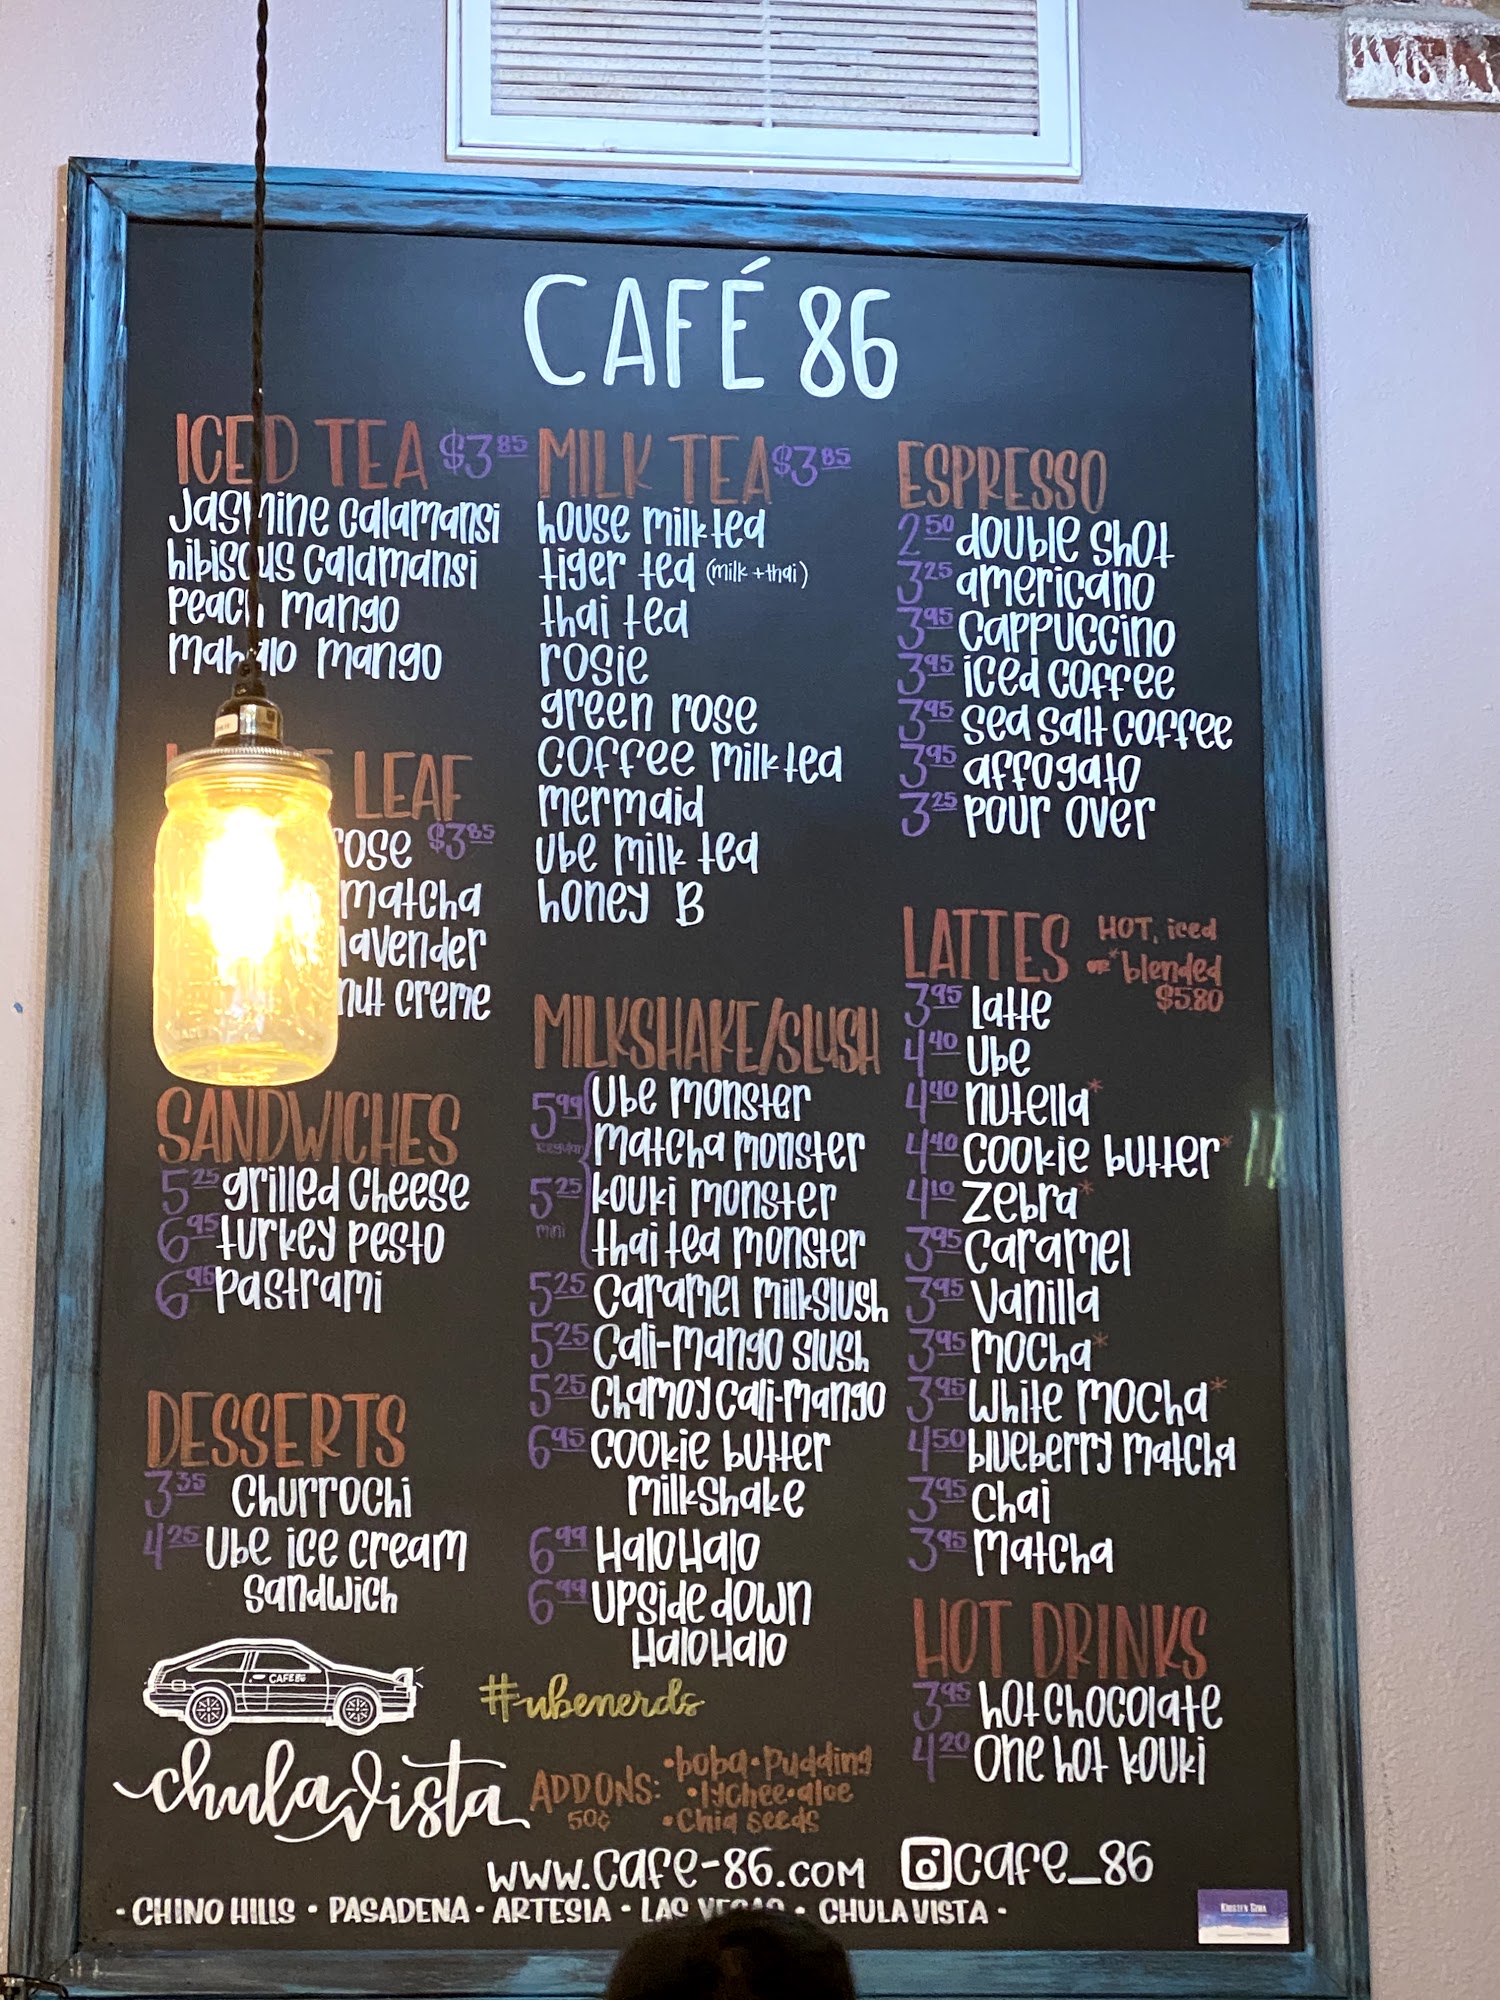 CAFÉ 86
ICED TEA $3.85
Jasmine calamansi
hibiscus calamansi
Peach mango
mahalo mango
LEAF
rose $3.85
matcha
lavender
nut creme
SANDWICHES
5.25 grilled cheese
6.95 turkey pesto
6.95 Pastrami
DESSERTS
3.35 Churrochi
4.25 Ube ice cream
sandwich
CAFE 86
chula vista
MILK TEA $3.85
house milk tea
tiger tea (milk + thai)
thai tea
rosie
green rose
coffee milk tea
mermaid
Ube milk tea
honey B
MILKSHAKE/SLUSH
5.99 Regular
5.25 mini
Ube monster
Matcha monster
kouki monster
thai tea monster
5.25 Caramel milkslush
5.25 Cali-mango slush
5.25 Chamoy Cali-mango
6.95 cookie butter
milkshake
6.99 HaloHalo
6.99 Upside down
HaloHalo
#ubenerds
ADDONS: 50¢
•boba•pudding
•lychee•aloe
•Chia seeds
ESPRESSO
2.50 double shot
3.25 americano
3.95 cappuccino
3.95 iced coffee
3.95 sea salt coffee
3.95 affogato
3.25 pour over
LATTES HOT, iced
or *blended
$5.80
3.95 latte
4.40 Ube
4.40 nutella*
4.40 cookie butter*
4.10 Zebra*
3.95 Caramel
3.95 Vanilla
3.95 mocha*
3.95 White mocha*
4.50 blueberry matcha
3.95 Chai
3.95 Matcha
HOT DRINKS
3.95 hot chocolate
4.20 One hot kouki
www.cafe-86.com cafe_86
• CHINO HILLS • PASADENA • ARTESIA • LAS VEGAS • CHULA VISTA •